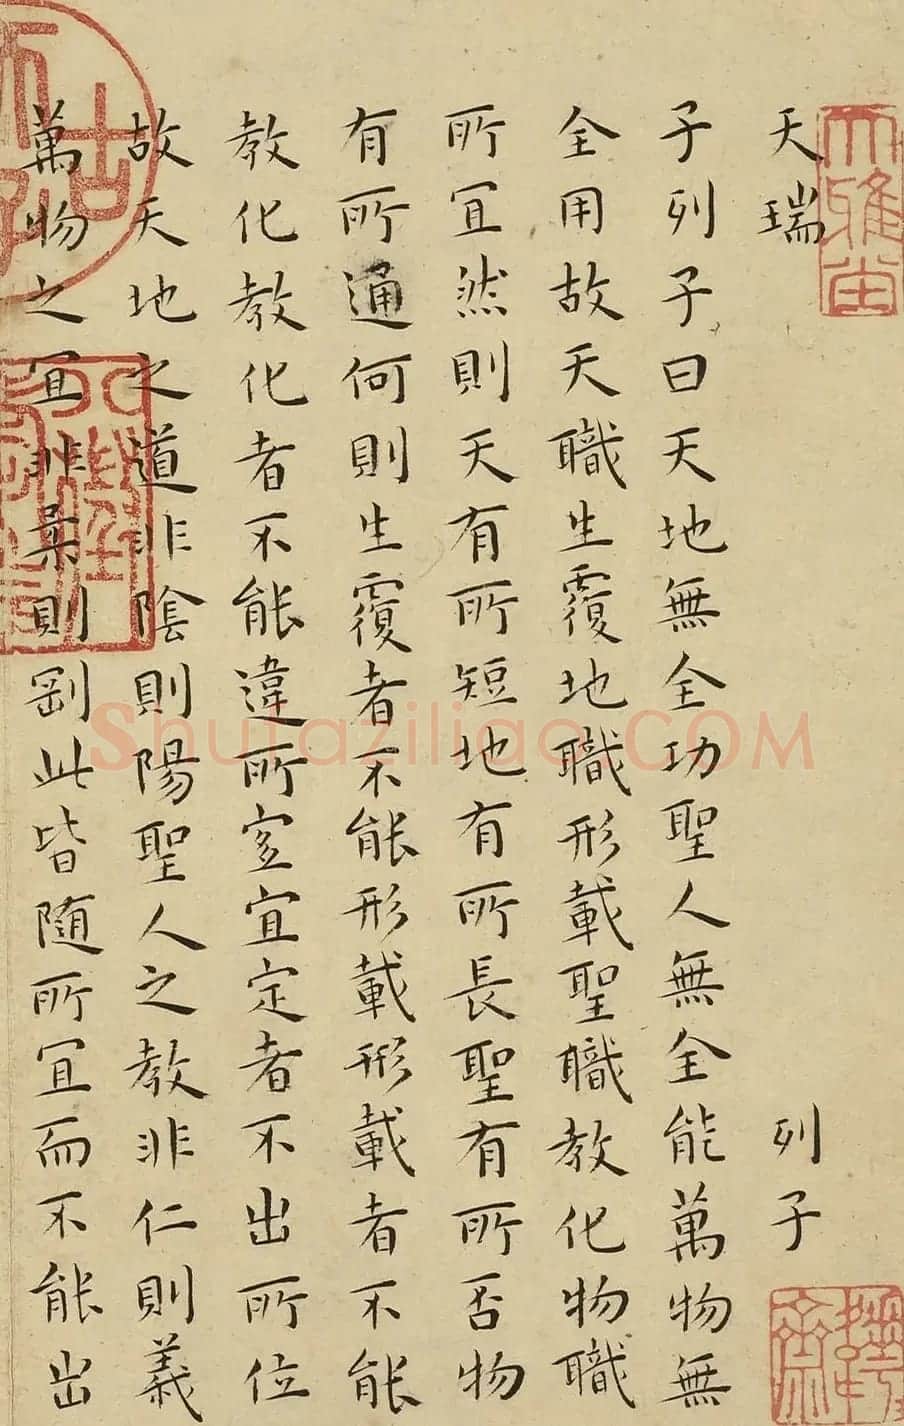 天瑞 列子
子列子曰天地無全功聖人無全能萬物無
全用故天職生覆地職形載聖職教化物職
所宜然則天有所短地有所長聖有所否物
有所通何則生覆者不能形載形載者不能
教化教化者不能違所宐宜定者不出所位
故天地之道非陰則陽聖人之教非仁則義
萬物之宜非柔則剛此皆随所宜而不能出
Shufaziliao.COM